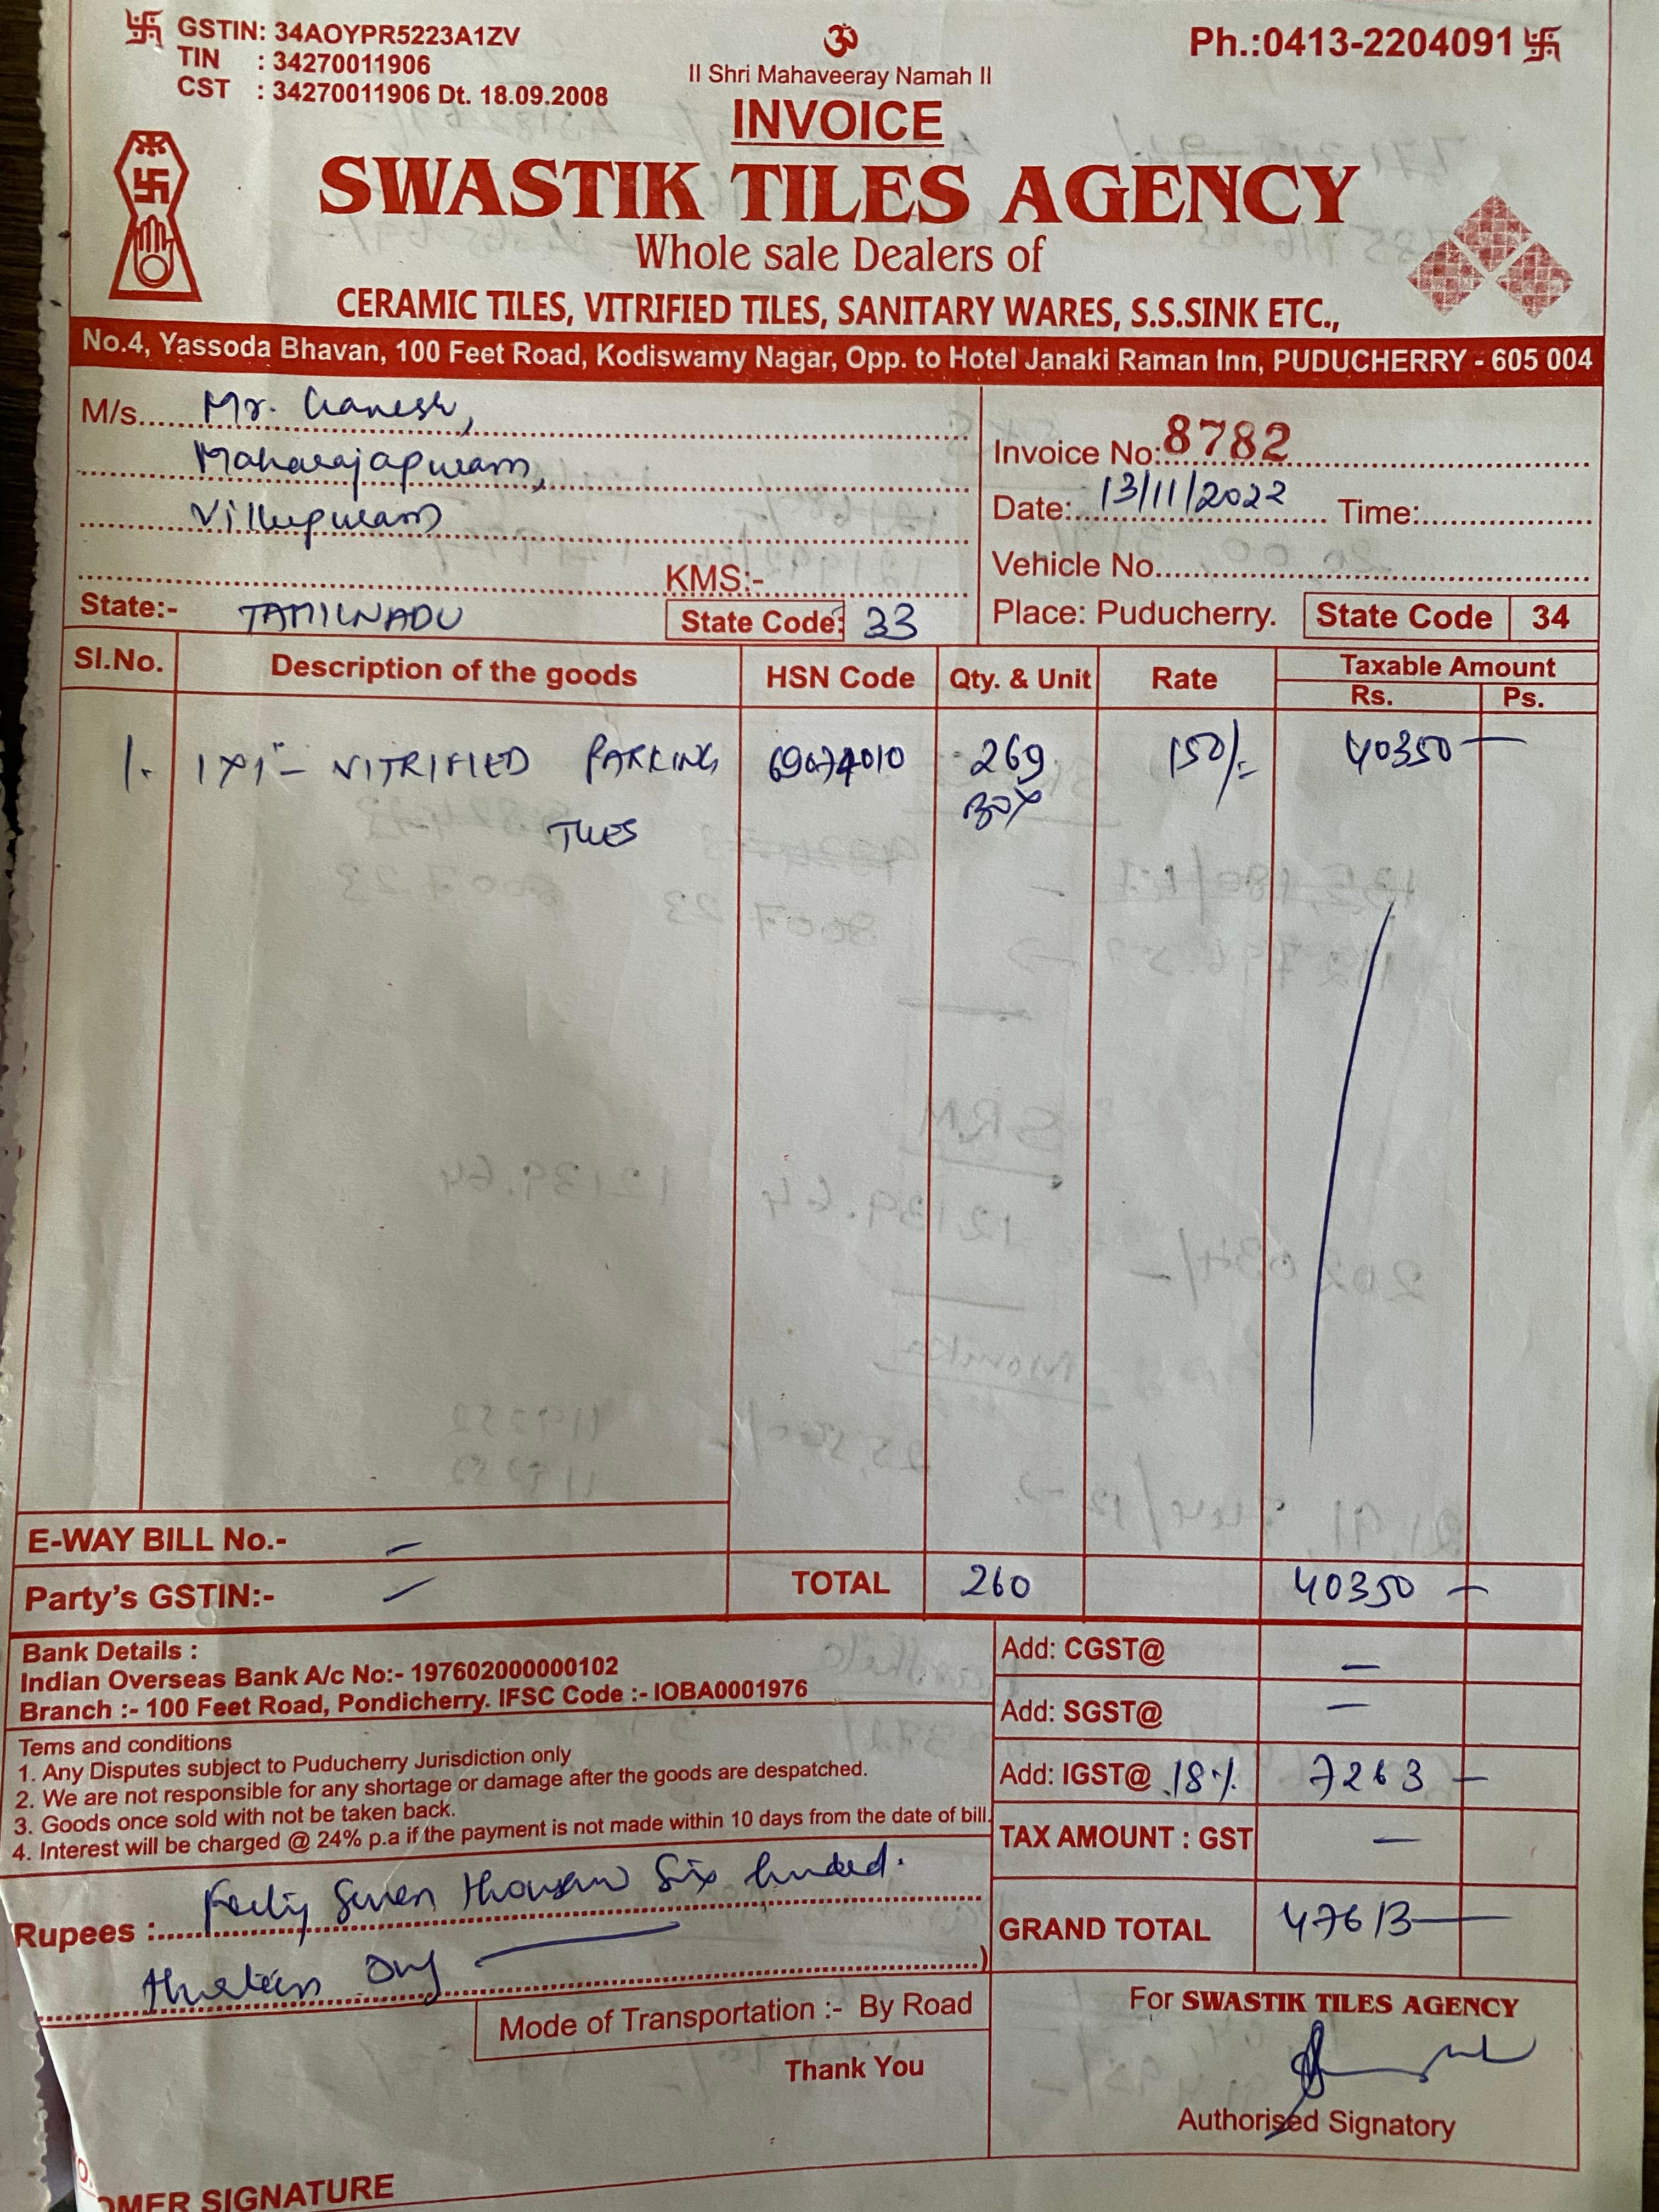 GSTIN: 34AOYPR5223A1ZV
TIN : 34270011906
CST : 34270011906 Dt. 18.09.2008
ॐ
II Shri Mahaveeray Namah II
Ph.:0413-2204091
INVOICE
SWASTIK TILES AGENCY
Whole sale Dealers of
CERAMIC TILES, VITRIFIED TILES, SANITARY WARES, S.S.SINK ETC.,
No.4, Yassoda Bhavan, 100 Feet Road, Kodiswamy Nagar, Opp. to Hotel Janaki Raman Inn, PUDUCHERRY - 605 004
M/s. Mr. Ganesh,
Maharajapuram,
Villupuram
KMS:-
State:- TAMILNADU State Code: 33
Invoice No: 8782
Date: 13/11/2022 Time:
Vehicle No.
Place: Puducherry. State Code 34
Sl.No. Description of the goods HSN Code Qty. & Unit Rate Taxable Amount
Rs. Ps.
1. 1x1" - VITRIFIED PARKING 69074010 269 150/- 40350 —
TILES BOX
E-WAY BILL No.- —
Party's GSTIN:- — TOTAL 260 40350 —
Bank Details :
Indian Overseas Bank A/c No:- 197602000000102
Branch :- 100 Feet Road, Pondicherry. IFSC Code :- IOBA0001976
Tems and conditions
1. Any Disputes subject to Puducherry Jurisdiction only
2. We are not responsible for any shortage or damage after the goods are despatched.
3. Goods once sold with not be taken back.
4. Interest will be charged @ 24% p.a if the payment is not made within 10 days from the date of bill.
Add: CGST@ —
Add: SGST@ —
Add: IGST@ 18% 7263 —
TAX AMOUNT : GST —
GRAND TOTAL 47613 —
Rupees : Forty Seven thousand Six hundred.
thirteen Only
Mode of Transportation :- By Road
Thank You
For SWASTIK TILES AGENCY
Authorised Signatory
OMER SIGNATURE